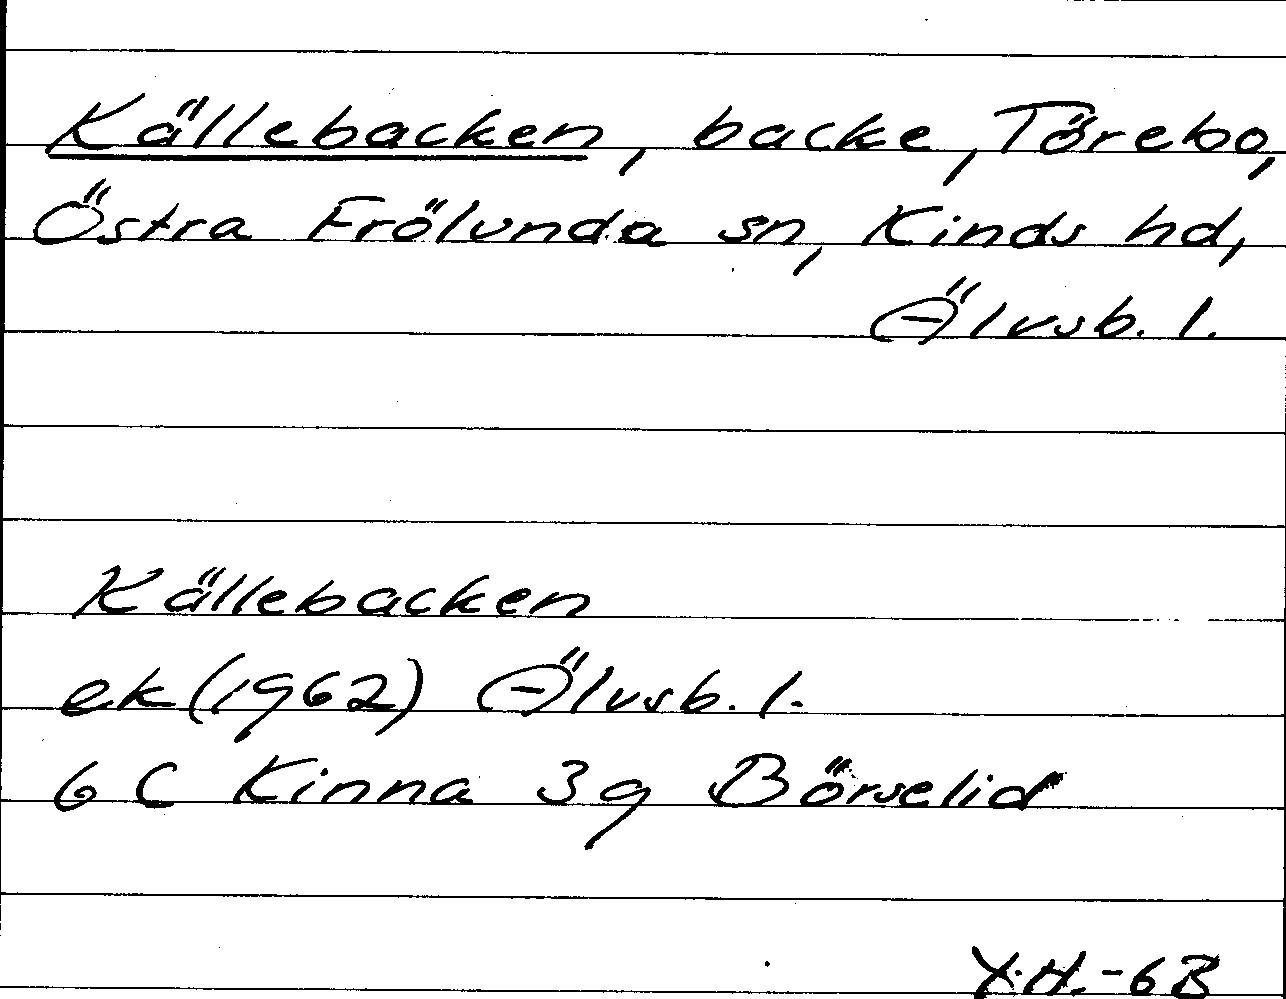 Källebacken, backe, Törebo,
Östra Frölunda sn, Kinds hd,
Älvsb. l.
Källebacken
ek (1962) Älvsb. l.
6 C Kinna 3g Börselid
Y.H.-63